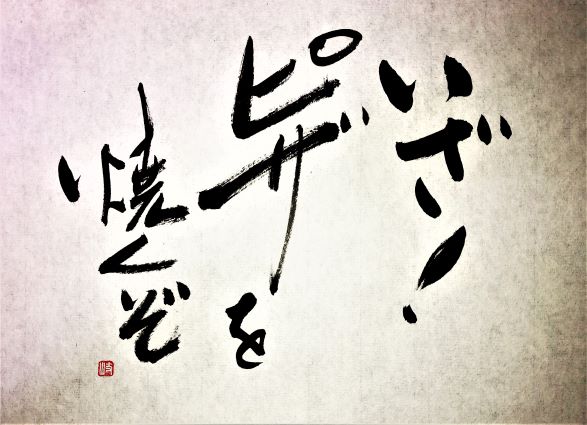 いざ!
ピザを
焼くぞ